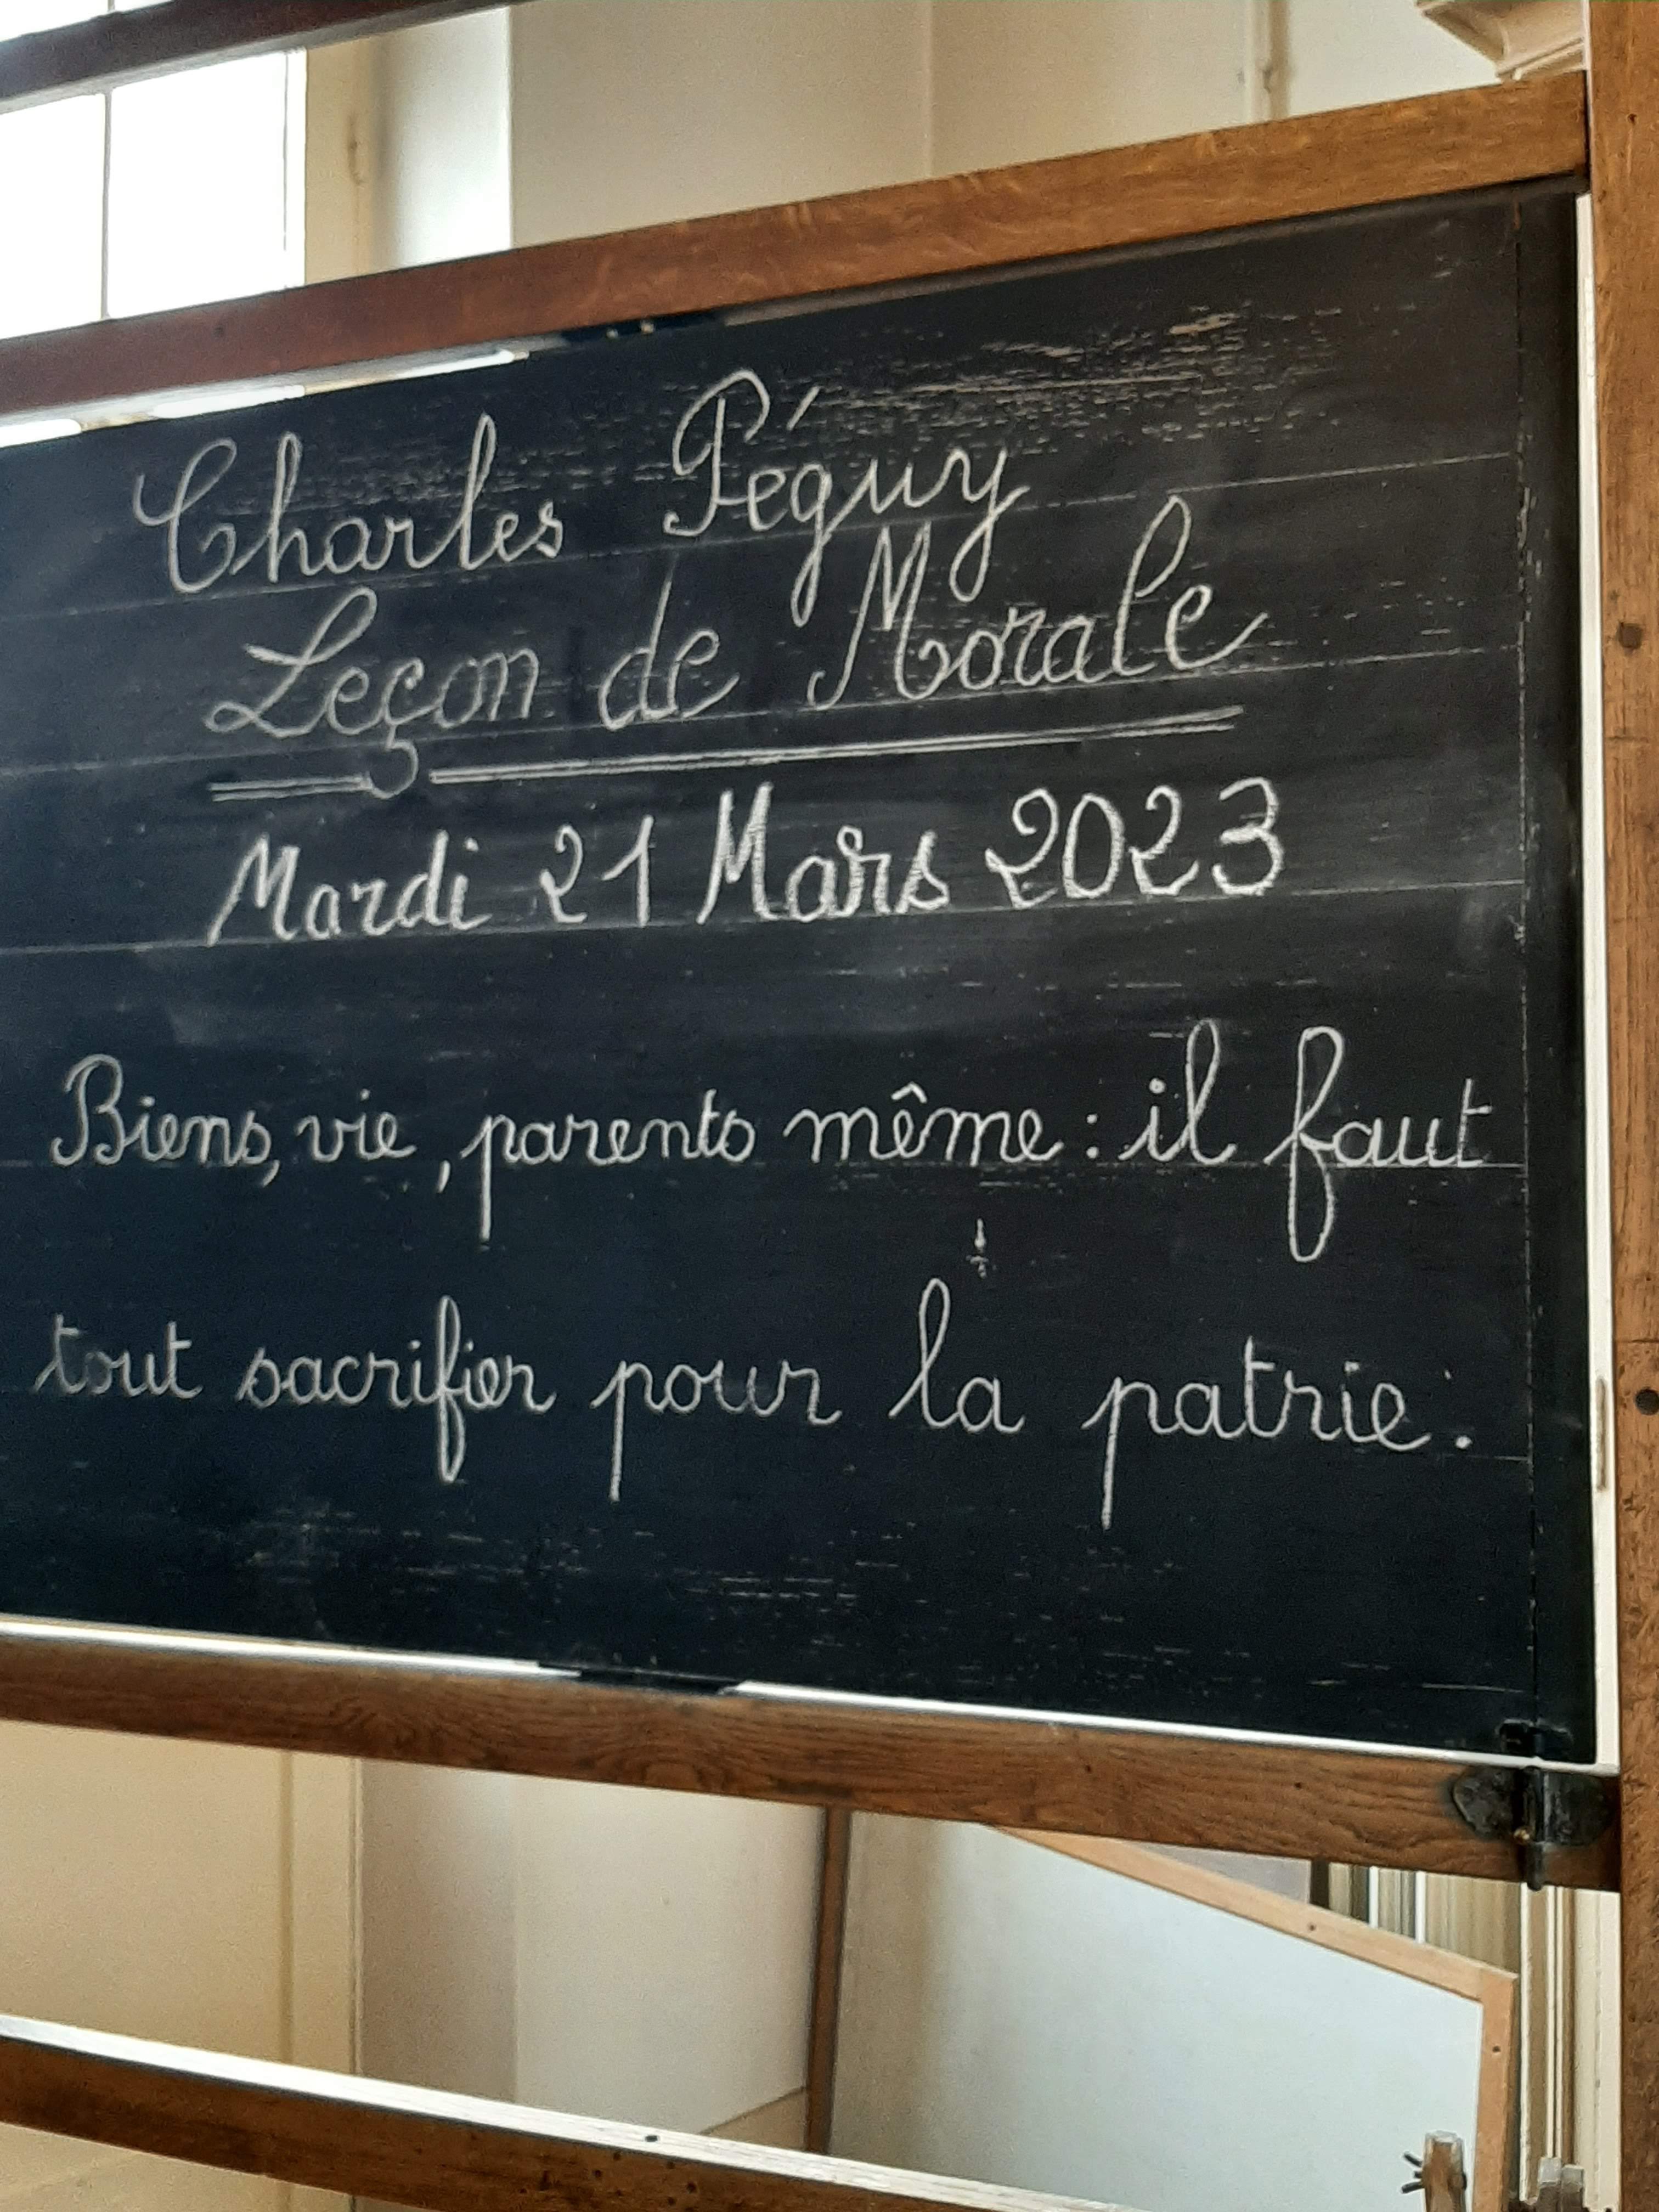 Charles Péguy
Leçon de Morale
Mardi 21 Mars 2023
Biens, vie, parents même : il faut
tout sacrifier pour la patrie.